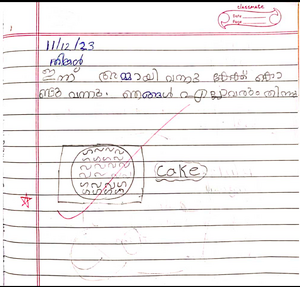 classmate
Date
Page
11/12/23
തിങ്കൾ
ഇന്ന് അമ്മായി വന്നു കേക്ക് കൊ
ണ്ടു വന്നു. ഞങ്ങൾ എല്ലാവരും തിന്നു
cake